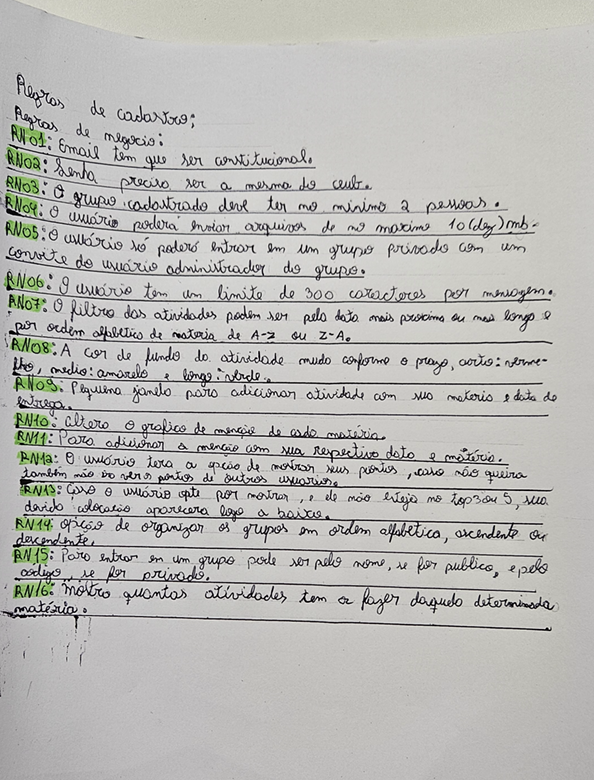 Regras de cadastro;
Regras de negocio:
RN01: Email tem que ser constitucional.
RN02: Senha precisa ser a mesma do ceub.
RN03: O grupo cadastrado deve ter no minimo 2 pessoas.
RN04: O usuário poderá enviar arquivos de no maximo 10(dez)mb.
RN05: O usuário só poderá entrar em um grupo privado com um
convite do usuário administrador do grupo.
RN06: O usuário tem um limite de 300 caracteres por mensagem.
RN07: O filtro das atividades podem ser pela data mais proxima ou mais longe e
por ordem alfabetica de materia de A-Z ou Z-A.
RN08: A cor de fundo da atividade muda conforme o prazo, curto: verme-
lho, medio: amarelo e longo: verde.
RN09: Pequena janela para adicionar atividade com sua materia e data de
entrega.
RN10: Altera o grafico de menção de cada matéria.
RN11: Para adicionar a menção com sua respectiva data e matéria.
RN12: O usuário tera a opção de mostrar seus pontos, caso não queira
também não irá ver os pontos de outros usuarios.
RN13: Caso o usuário opte por mostrar, e ele não esteja no top 3 ou 5, sua
devida colocação aparecera logo a baixo.
RN14: opção de organizar os grupos em ordem alfabética, ascendente ou
descendente.
RN15: Para entrar em um grupo pode ser pelo nome, se for publico, e pelo
código, se for privado.
RN16: Mostra quantas atividades tem a fazer daquela determinada
matéria.